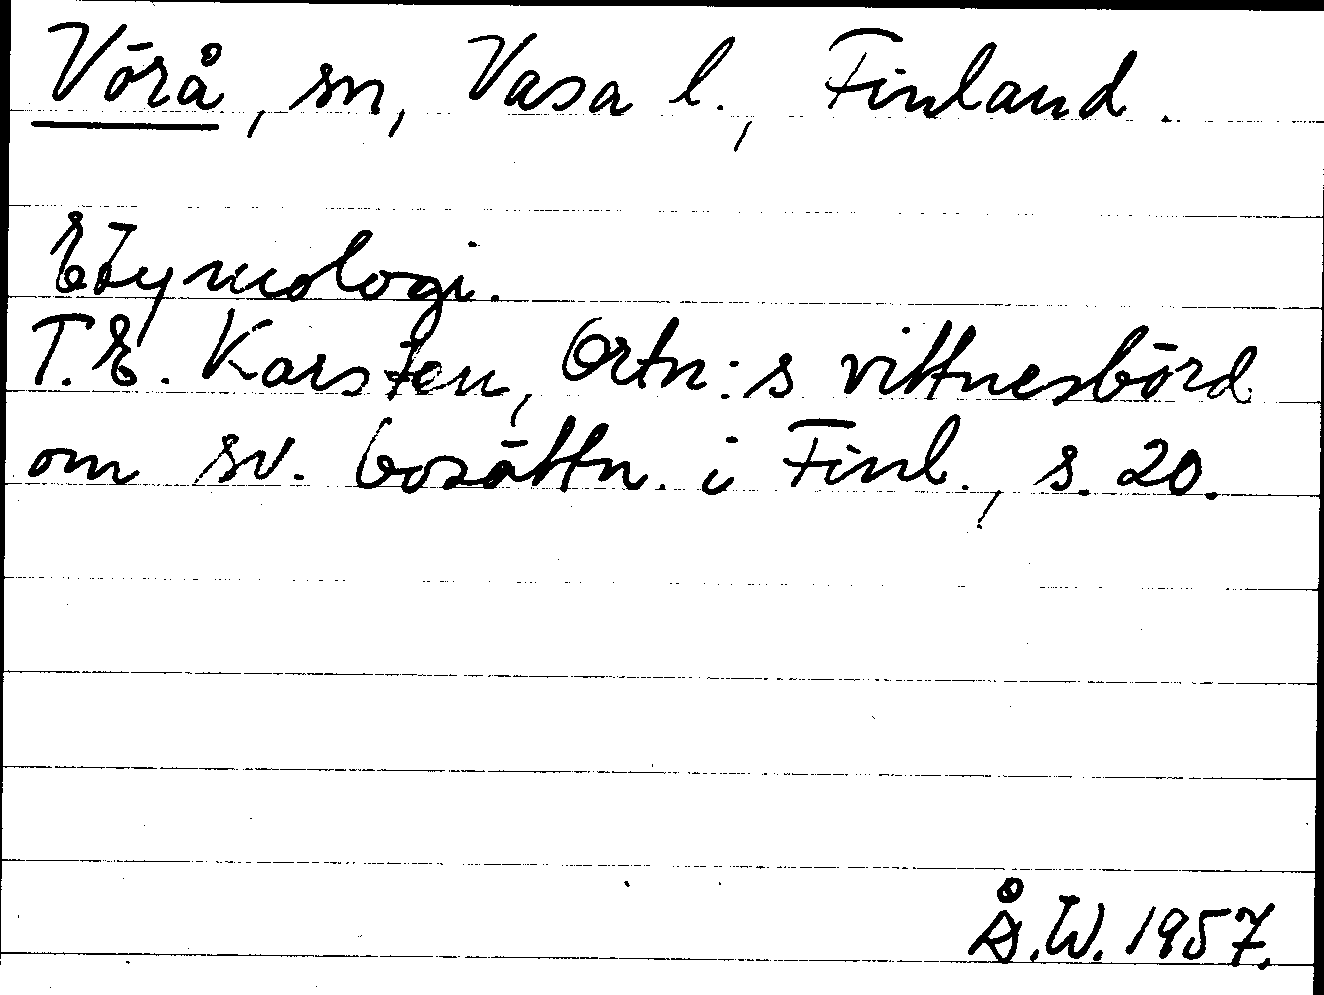 Vörå, sn, Vasa l., Finland.
Etymologi.
T.E. Karsten, Ortn:s vittnesbörd
om sv. bosättn. i Finl., s. 20.
Å.W. 1957.